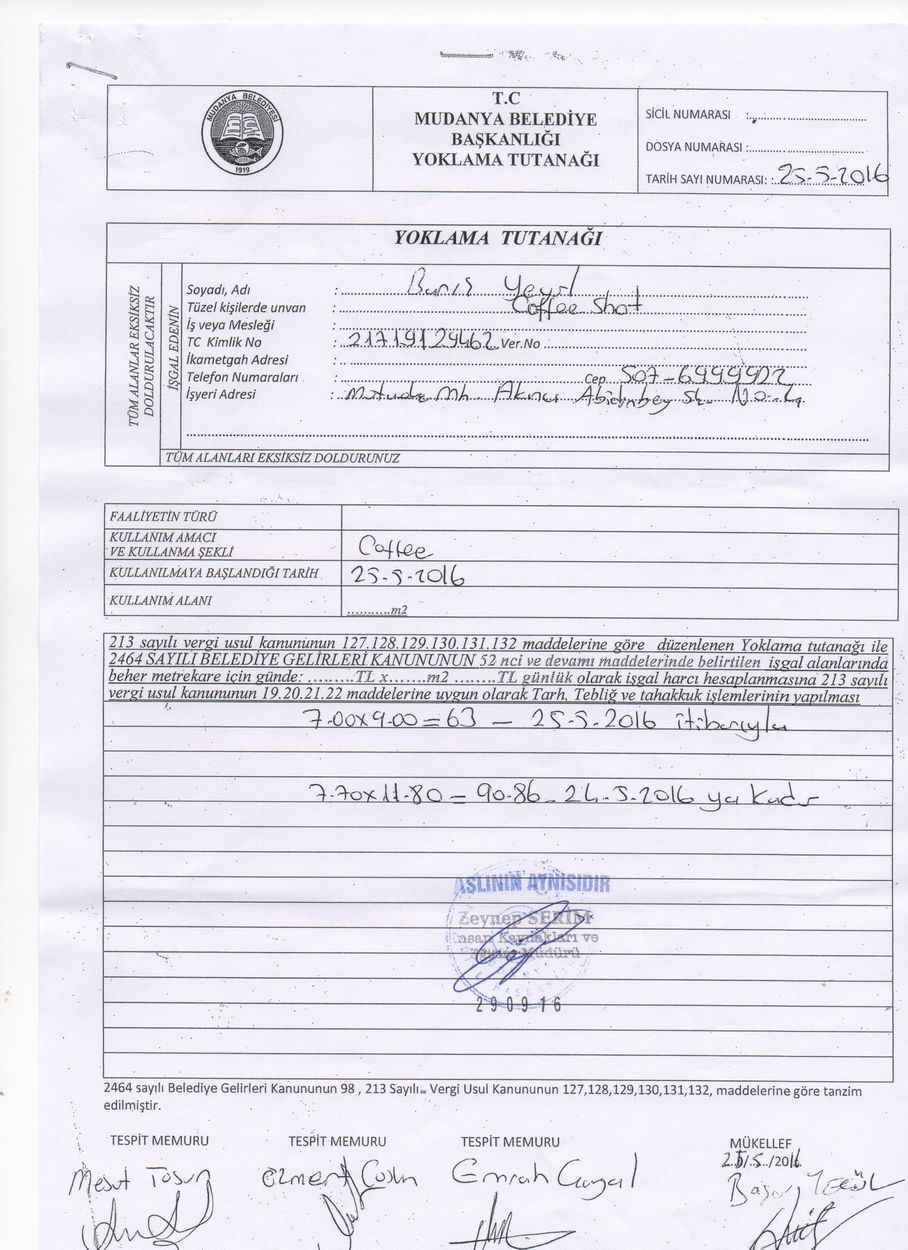 MUDANYA BELEDİYESİ
1919
T.C
MUDANYA BELEDİYE
BAŞKANLIĞI
YOKLAMA TUTANAĞI
SİCİL NUMARASI :
DOSYA NUMARASI :
TARİH SAYI NUMARASI: : 25-5-2016
YOKLAMA TUTANAĞI
TÜM ALANLAR EKSİKSİZ
DOLDURULACAKTIR
İŞGAL EDENİN
Soyadı, Adı :
Tüzel kişilerde unvan : Coffee Shot
İş veya Mesleği :
TC Kimlik No : 21719129462 Ver.No
İkametgah Adresi :
Telefon Numaraları : Cep. 507-6999922
İşyeri Adresi : Mh. Akıncı
TÜM ALANLARI EKSİKSİZ DOLDURUNUZ
FAALİYETİN TÜRÜ
KULLANIM AMACI
VE KULLANMA ŞEKLİ Coffee
KULLANILMAYA BAŞLANDIĞI TARİH 25-5-2016
KULLANIM ALANI ...........m2
213 sayılı vergi usul kanununun 127.128.129.130.131.132 maddelerine göre düzenlenen Yoklama tutanağı ile
2464 SAYILI BELEDİYE GELİRLERİ KANUNUNUN 52 nci ve devamı maddelerinde belirtilen işgal alanlarında
beher metrekare için günde: .........TL x.......m2 ........TL günlük olarak işgal harcı hesaplanmasına 213 sayılı
vergi usul kanununun 19.20.21.22 maddelerine uygun olarak Tarh, Tebliğ ve tahakkuk işlemlerinin yapılması
7.00x9.00=63 - 25-5-2016 itibarıyla
7.70x11.80= 90.86 - 24-5-2016 ya kadar
ASLININ AYNISIDIR
Zeynep SERİM
İnsan Kaynakları ve
Eğitim Müdürü
290916
2464 sayılı Belediye Gelirleri Kanununun 98 , 213 Sayılı Vergi Usul Kanununun 127,128,129,130,131,132, maddelerine göre tanzim
edilmiştir.
TESPİT MEMURU TESPİT MEMURU TESPİT MEMURU MÜKELLEF
25/5/2016
Mesut Tosun Emrah